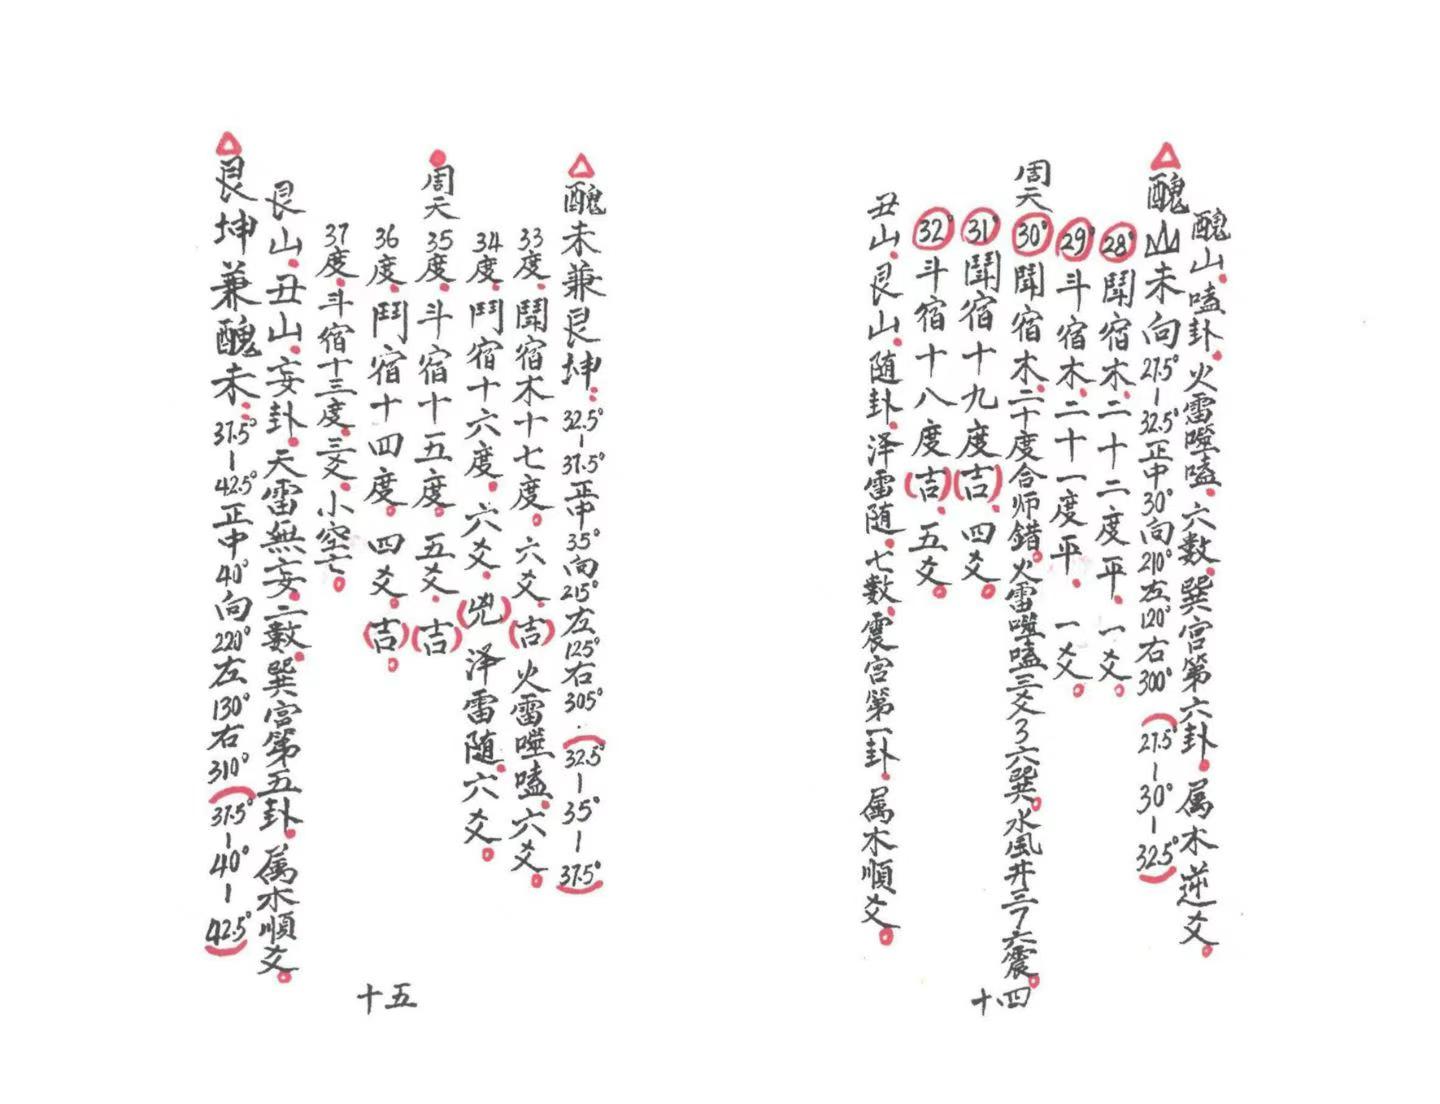 醜山.嗑卦.火雷噬嗑.六數.巽宫第六卦.属木逆爻.
醜山未向27.5°-32.5°正中30°向210°左120°右300°(27.5°-30°-32.5°)
28°鬪宿木.二十二度平.一爻。
29°斗宿木.二十一度平.一爻。
周天30°鬪宿木.二十度合师錯.火雷噬嗑三爻3六巽.水風井三7六震.
31°鬪宿十九度(吉).四爻。
32°斗宿十八度(吉).五爻。
丑山.艮山.随卦.泽雷随.七數.震宫第一卦.属木順爻。
十四
醜未兼艮坤:32.5°-37.5°正中35°向215°左125°右305°.(32.5°-35°-37.5°)
33度.鬪宿木十七度。六爻.(吉)火雷噬嗑.六爻。
34度.鬥宿十六度.六爻.(兇)泽雷随.六爻。
周天35度.斗宿十五度。五爻.(吉)
36度.鬥宿十四度。四爻.(吉)。
37度.斗宿十三度.三爻.小空亡。
艮山.丑山.妄卦.天雷無妄.二數.巽宫第五卦.属木順爻.
艮坤兼醜未:37.5°-42.5°正中40°向220°左130°右310°(37.5°-40°-42.5°)
十五